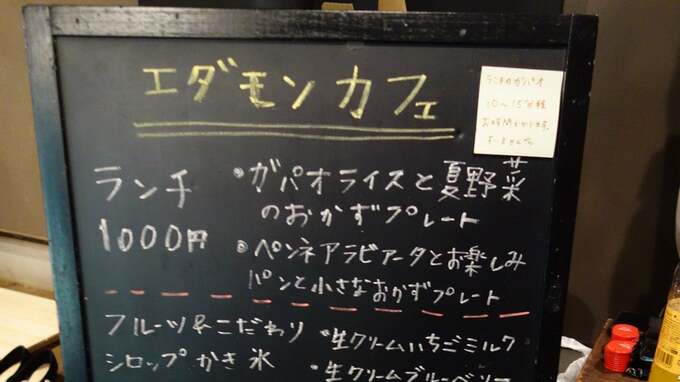 エダモンカフェ
10〜15分程
お時間かかります。
すみません
ランチ
1000円
・ガパオライスと夏野菜
のおかずプレート
・ペンネアラビアータとお楽しみ
パンと小さなおかずプレート
フルーツ&こだわり
シロップかき氷
・生クリームいちごミルク
・生クリームブルーベリー